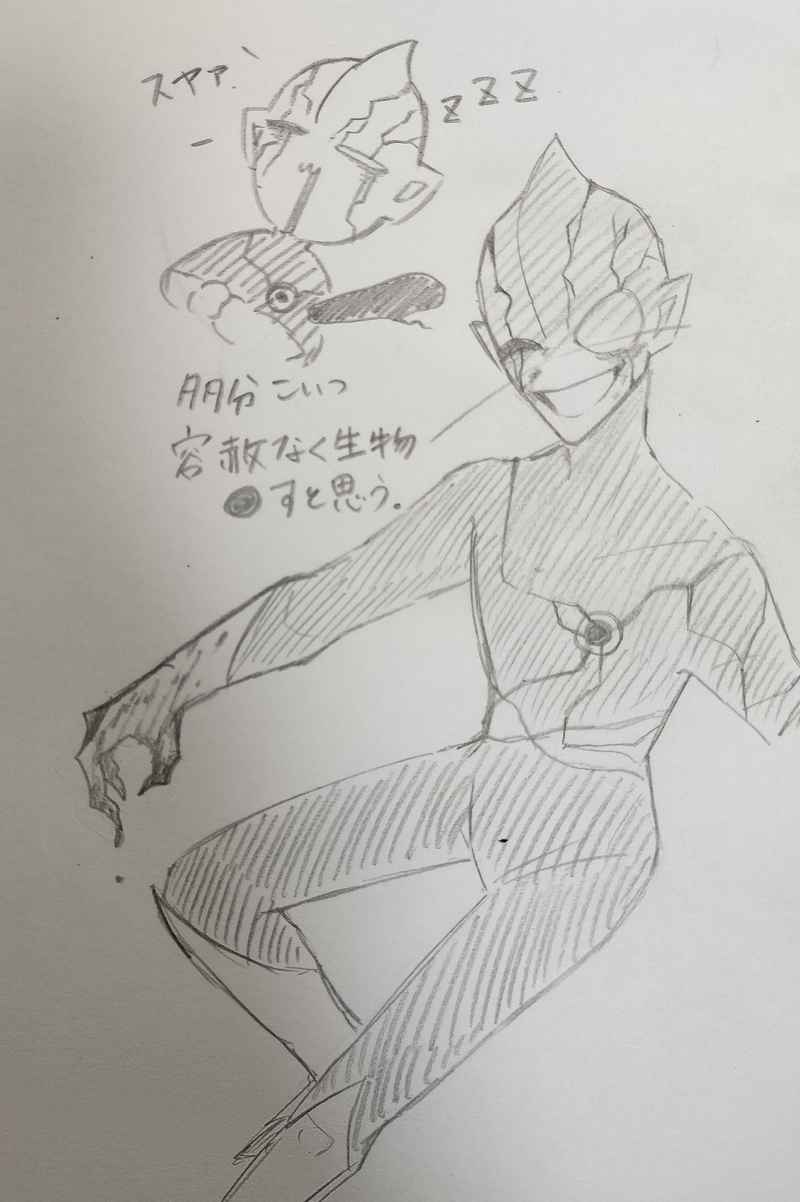 スヤァ、
z z z
多分 こいつ
容赦なく生物
●すと思う。